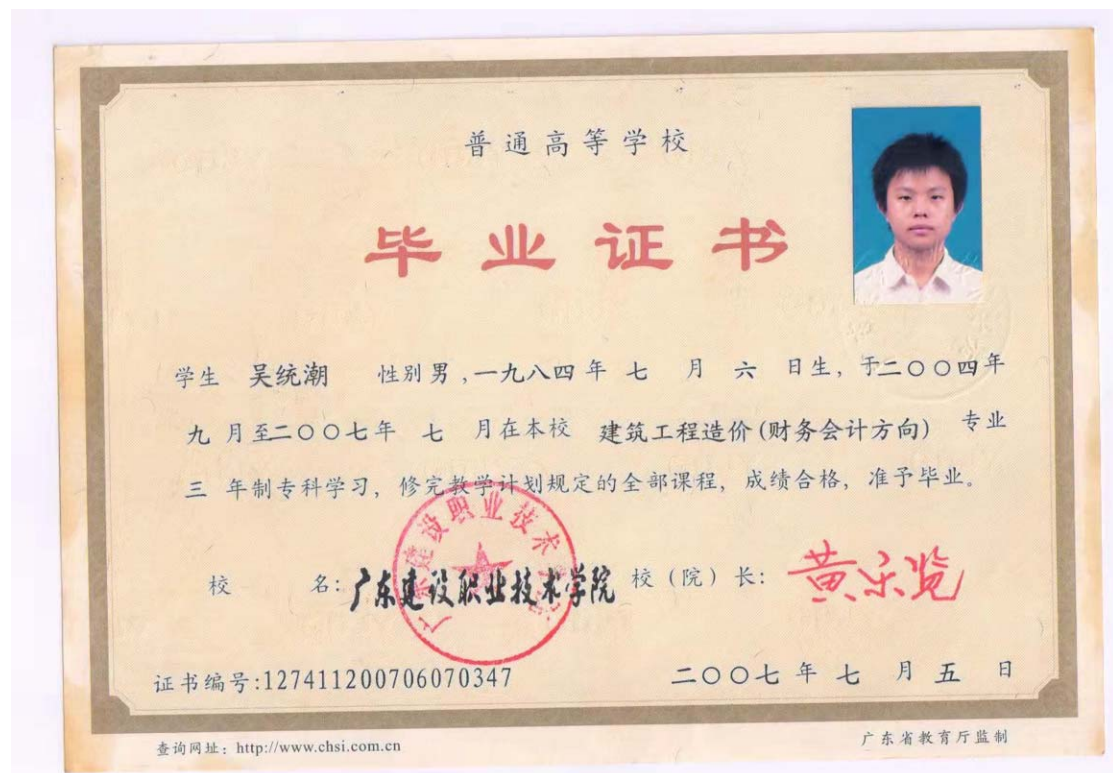 普通高等学校
毕业证书
学生 吴统潮 性别男,一九八四年 七 月 六 日生,于二〇〇四年
九 月至二〇〇七年 七 月在本校 建筑工程造价(财务会计方向) 专业
三 年制专科学习,修完教学计划规定的全部课程,成绩合格,准予毕业。
校 名:广东建设职业技术学院 校(院)长:
证书编号:127411200706070347 二〇〇七年 七 月 五 日
查询网址:http://www.chsi.com.cn 广东省教育厅监制